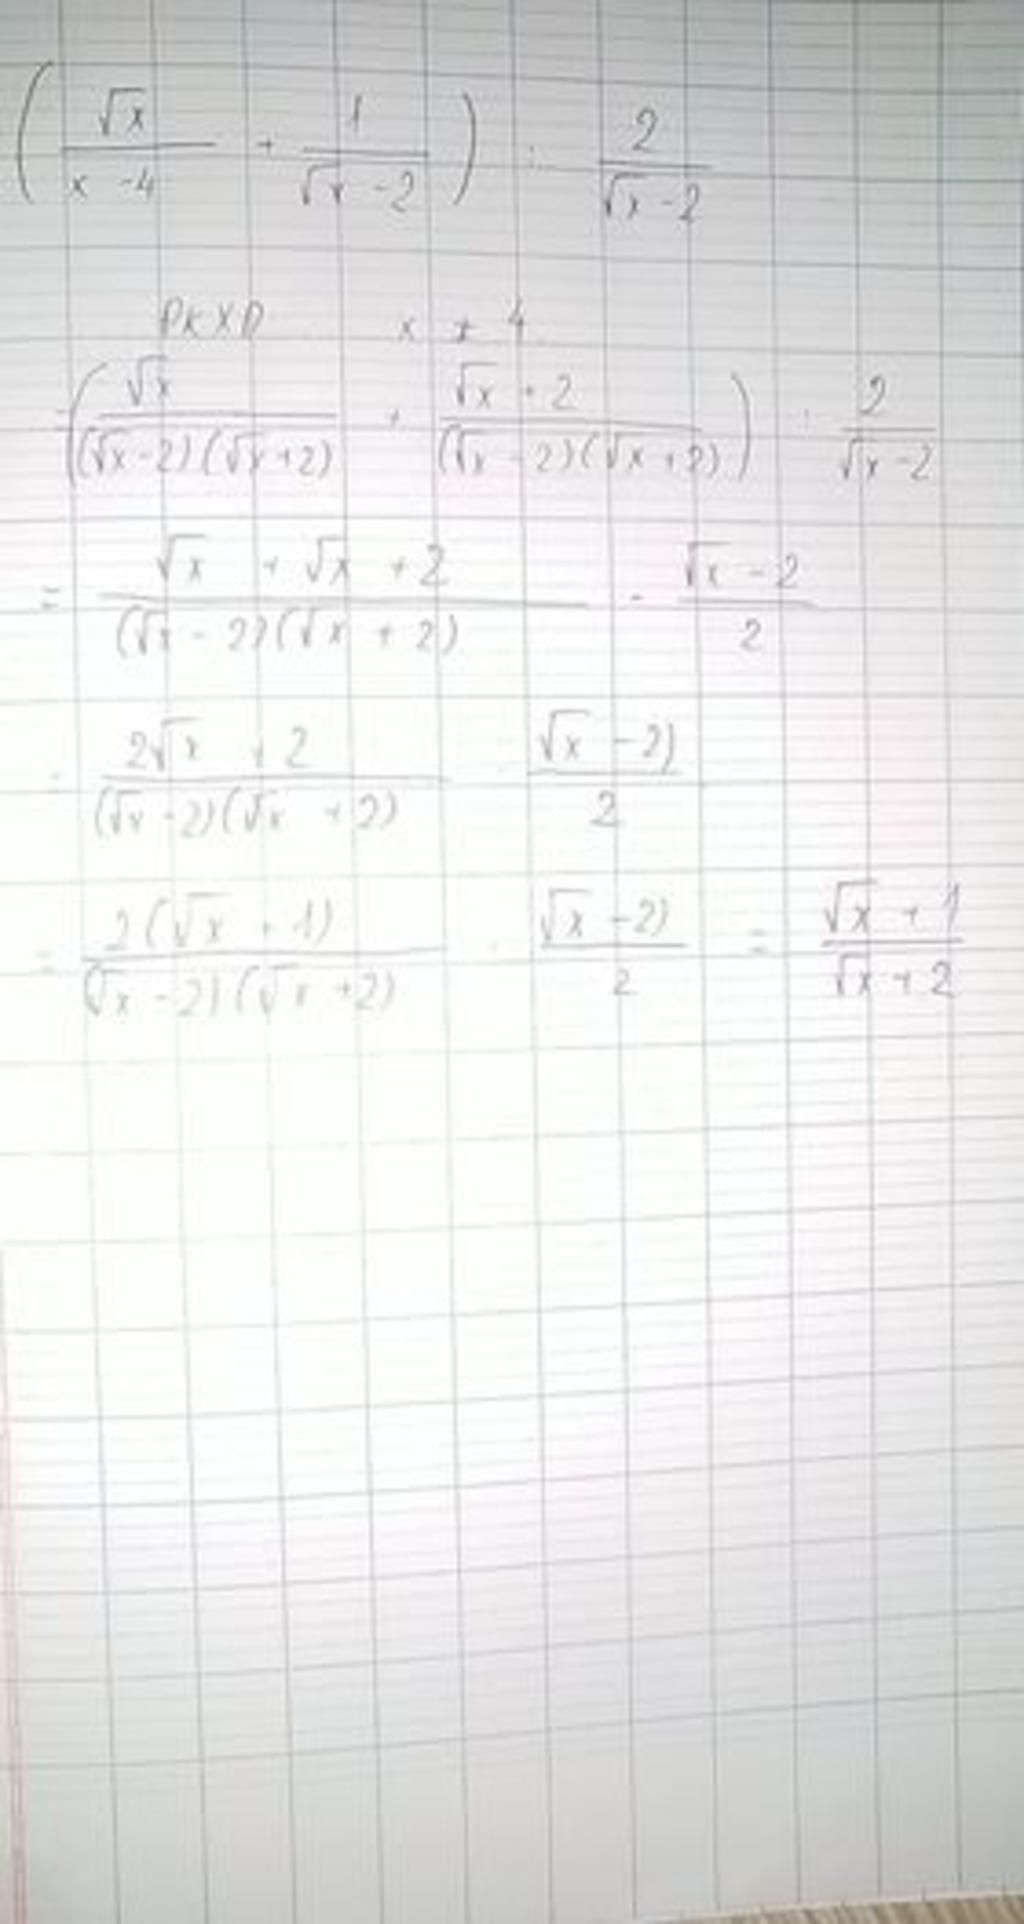 ( √x / x - 4 + 1 / √x - 2 ) : 2 / √x - 2
ĐKXĐ x ≠ 4
= ( √x / (√x - 2)(√x + 2) + √x + 2 / (√x - 2)(√x + 2) ) : 2 / √x - 2
= √x + √x + 2 / (√x - 2)(√x + 2) · √x - 2 / 2
= 2√x + 2 / (√x - 2)(√x + 2) · √x - 2) / 2
= 2(√x + 1) / (√x - 2)(√x + 2) · √x - 2) / 2 = √x + 1 / √x + 2